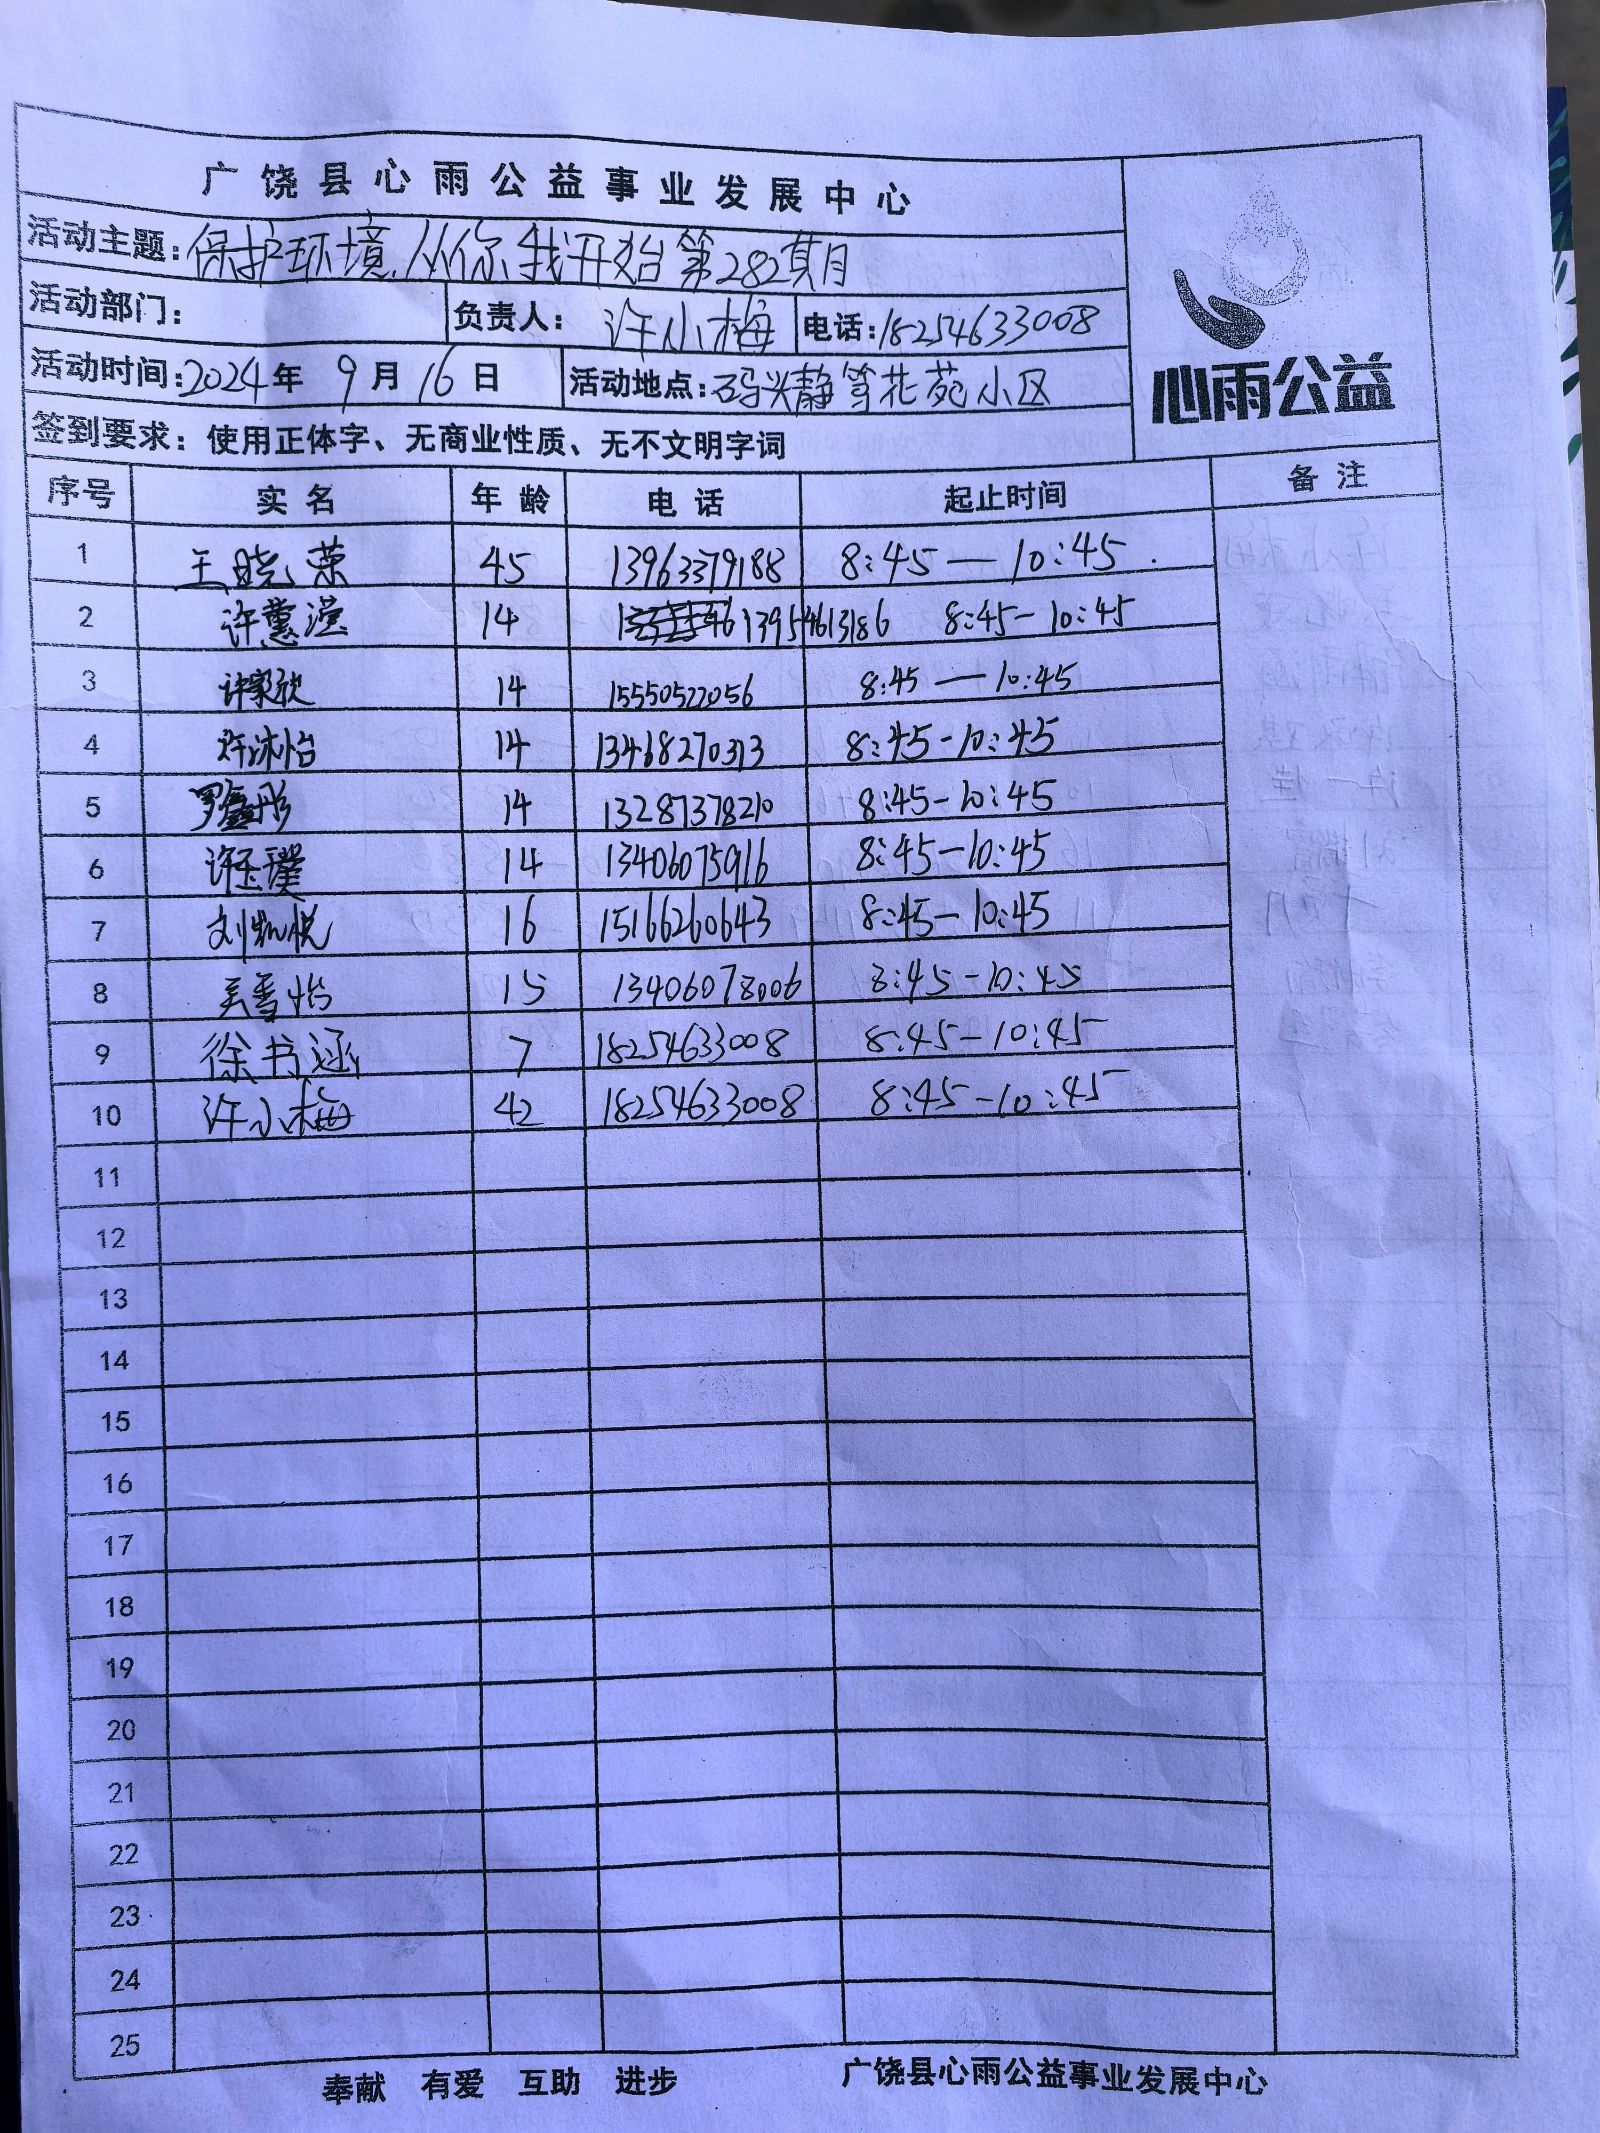 广饶县心雨公益事业发展中心
活动主题：保护环境、从你我开始第282期
活动部门： 负责人：许小梅 电话：18254633008
活动时间：2024年9月16日 活动地点：码兴静等花苑小区
心雨公益
签到要求：使用正体字、无商业性质、无不文明字词
序号 实名 年龄 电话 起止时间 备注
1 王晓荣 45 13963379188 8:45—10:45
2 许蕙滢 14 13954613186 8:45-10:45
3 许家欣 14 15550522056 8:45—10:45
4 许沐怡 14 13468270313 8:45-10:45
5 罗鑫彤 14 13287378210 8:45-10:45
6 许玉璞 14 13406075916 8:45-10:45
7 刘凯悦 16 15166260643 8:45-10:45
8 吴雪怡 15 13406078006 8:45-10:45
9 徐书涵 7 18254633008 8:45-10:45
10 许小梅 42 18254633008 8:45-10:45
11
12
13
14
15
16
17
18
19
20
21
22
23
24
25
奉献 有爱 互助 进步 广饶县心雨公益事业发展中心